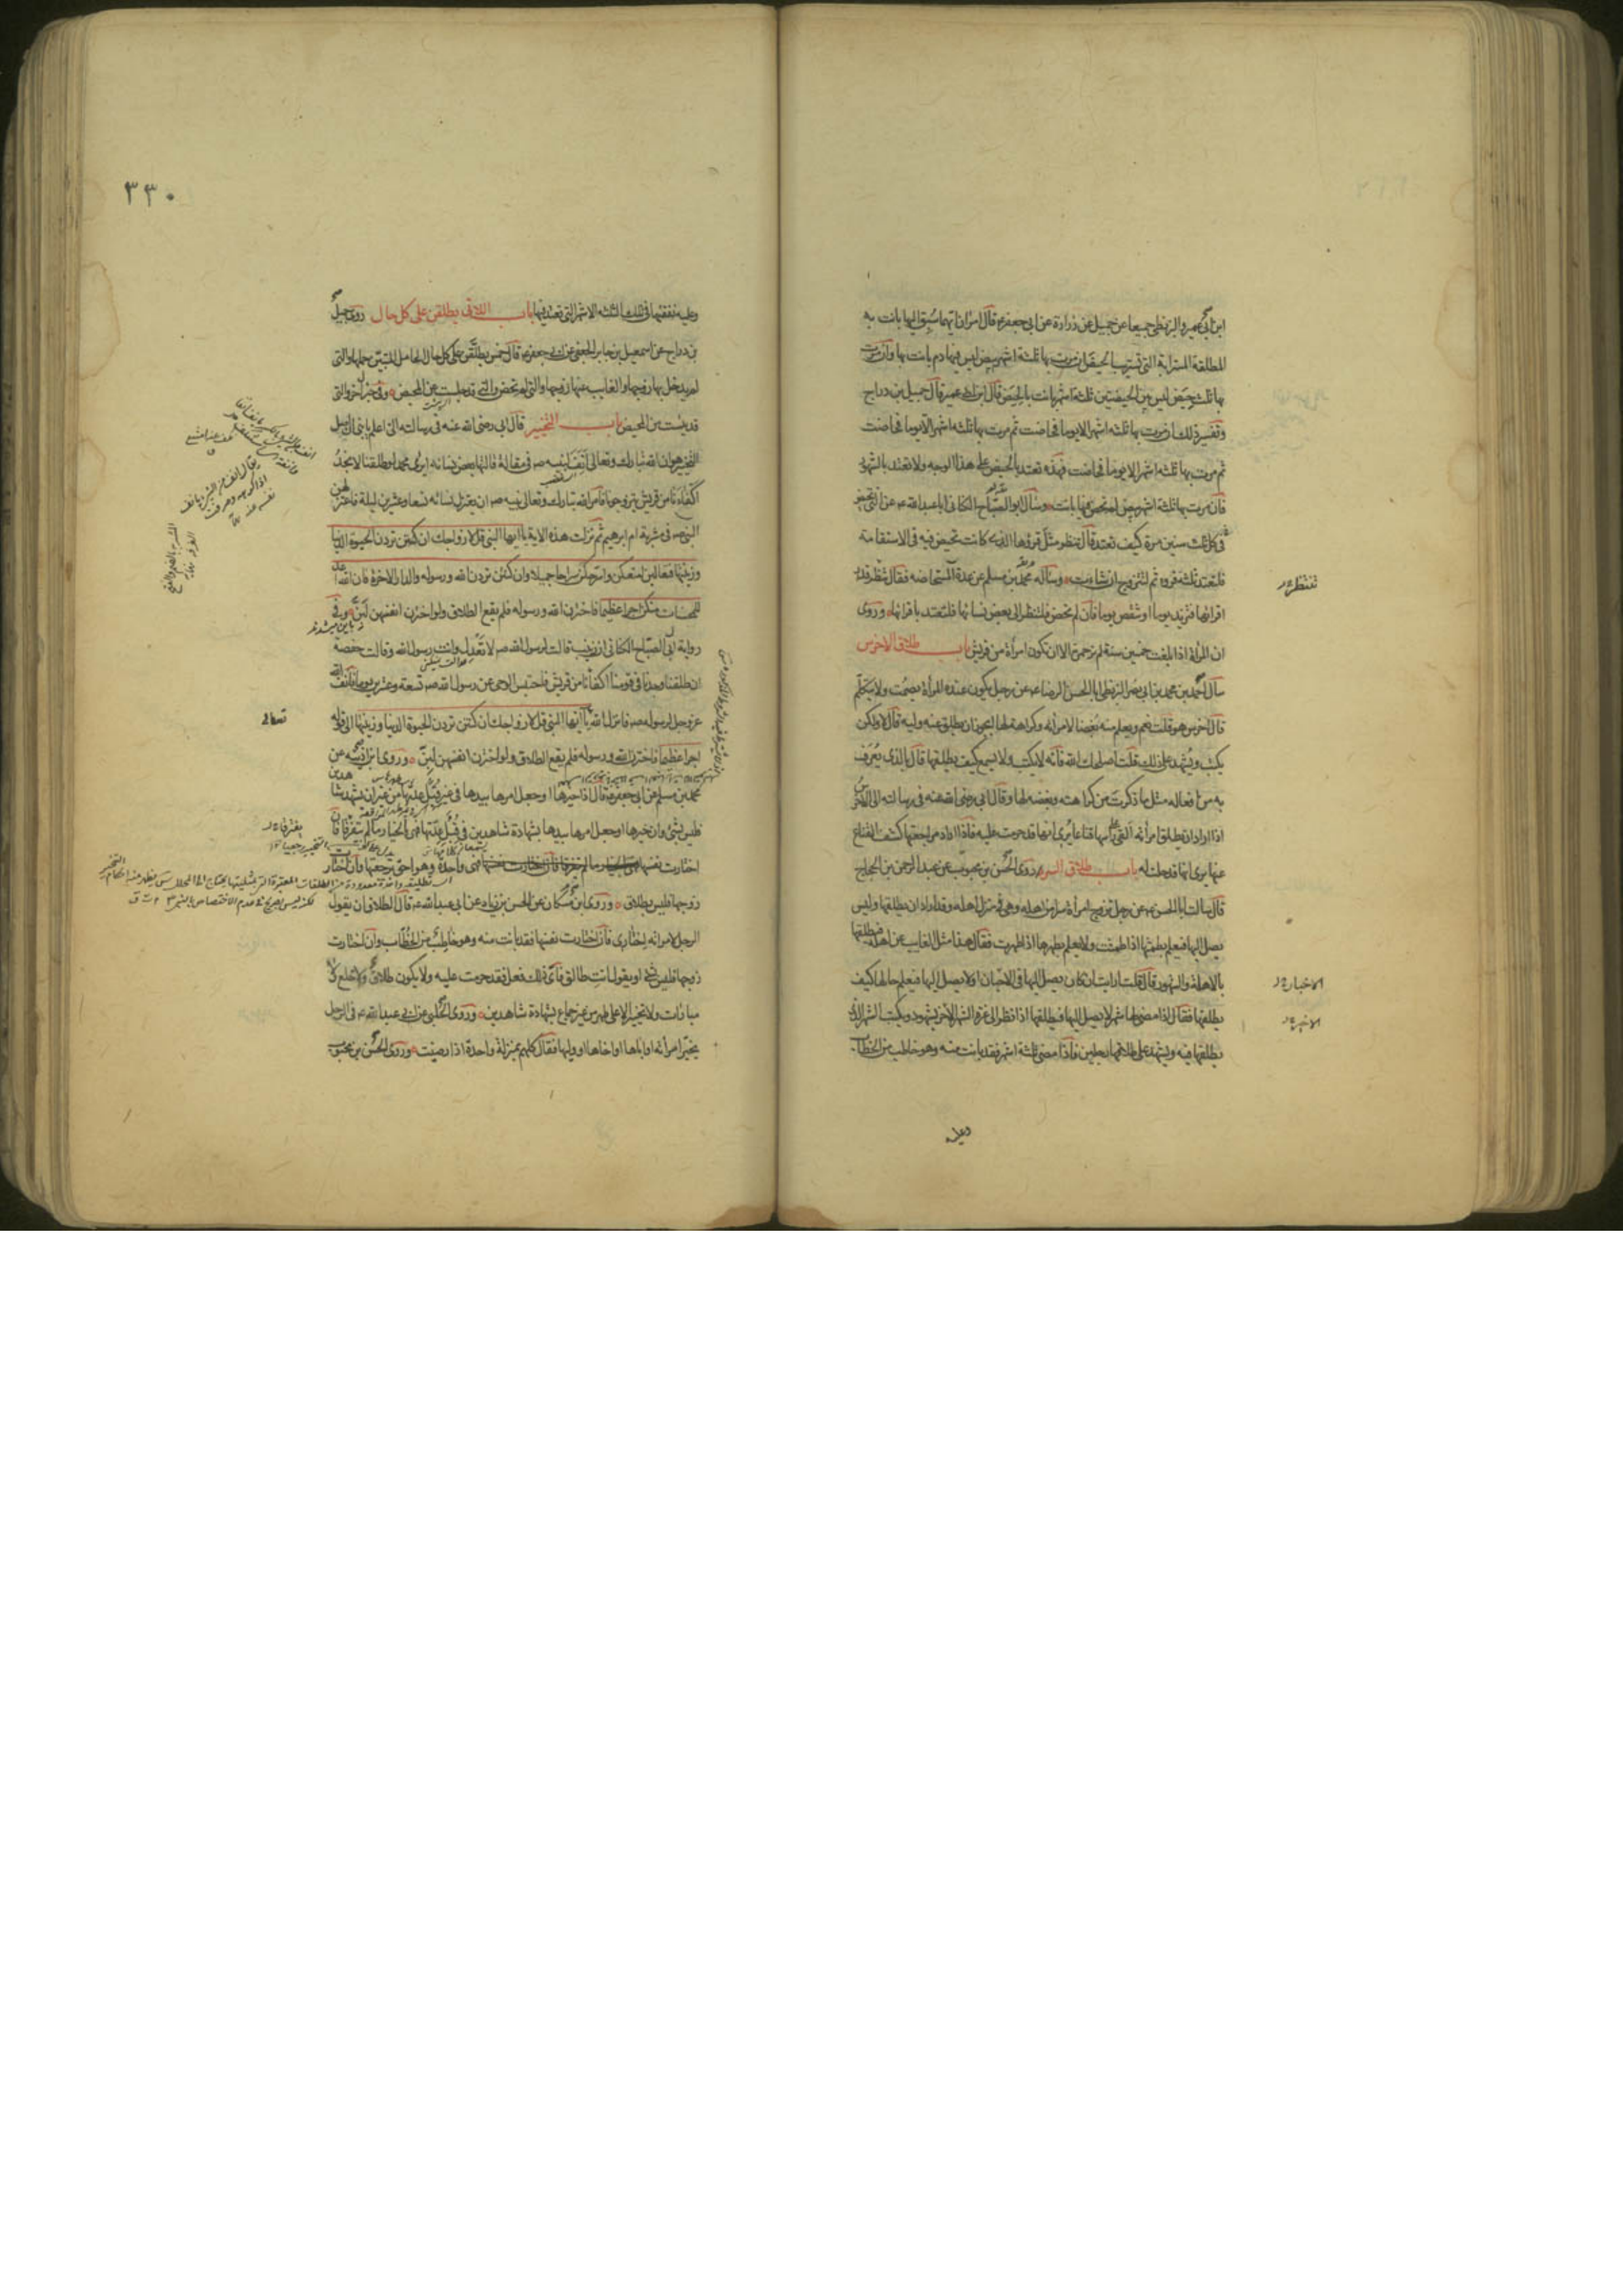 ابن ابي عمير والبزنطي جميعا عن جميل عن زرارة عن ابي جعفر ع قال امران ايهما سبق اليها بانت به
المطلقة المسترابة التي تستريب الحيض ان مرت بها ثلثة اشهر بيض ليس فيها دم بانت بها وان مرت
بها ثلث حيض ليس بين الحيضتين ثلثة اشهر بانت بالحيض قال ابن ابي عمير قال جميل بن دراج
وتفسير ذلك ان مرت بها ثلثة اشهر الا يوما فحاضت ثم مرت بها ثلثة اشهر الا يوما فحاضت
ثم مرت بها ثلثة اشهر الا يوما فحاضت فهذه تعتد بالحيض على هذا الوجه ولا تعتد بالشهور
فان مرت بها ثلثة اشهر بيض لم تحض فيها بانت وسأل ابو الصباح الكناني ابا عبد الله ع عن التي تحيض
في كل ثلث سنين مرة كيف تعتد قال تنظر مثل قروها الذي كانت تحيض فيه في الاستقامة
فلتعتد ثلثة قروء ثم لتتزوج ان شاءت وسأله محمد بن مسلم عن عدة المستحاضة فقال تنظر قدر
تنتظر
اقرائها فتزيد يوما او تنقص يوما فان لم تحض فلتنظر الى بعض نسائها فلتعتد باقرائها وروى
ان المرأة اذا بلغت خمسين سنة لم تر حمرة الا ان تكون امرأة من قريش باب طلاق الاخرس
سأل احمد بن محمد بن ابي نصر البزنطي ابا الحسن الرضا ع عن رجل يكون عنده المرأة يصمت ولا يتكلم
قال اخرس هو قلت نعم ويعلم منه بغضا لامرأته وكراهته لها ايجوز ان يطلق عنه وليه قال لا ولكن
يكتب ويشهد على ذلك قلت اصلحك الله فانه لا يكتب ولا يسمع كيف يطلقها قال بالذي يعرف
به من افعاله مثل ما ذكرت من كراهته وبغضه لها وقال ابي رضي الله عنه في رسالته الي الاخرس
اذا اراد ان يطلق امرأته القى على رأسها قناعا يرى انها قد حرمت عليه فاذا اراد مراجعتها كشف القناع
عنها يرى انها قد حلت له باب طلاق السر روى الحسن بن محبوب عن عبد الرحمن بن الحجاج
قال سالت ابا الحسن ع عن رجل تزوج امرأة سرا من اهله وهي في منزل اهلها وقد اراد ان يطلقها وليس
يصل اليها فيعلم بطمثها اذا طمثت ولا يعلم بطهرها اذا طهرت فقال هذا مثل الغايب عن اهله فيطلقها
بالاهلة والشهور قال قلت ارايت ان كان يصل اليها في الاحيان او لا يصل اليها فيعلم حالها كيف
الاخبار
يطلقها فقال اذا مضى لها شهر لا يصل اليها فيطلقها اذا نظر الى غرة الشهر الاخر بشهود ويكتب الشهر الذي
الاخير
يطلقها فيه ويشهد على طلاقها رجلين فاذا مضى ثلثة اشهر فقد بانت منه وهو خاطب من الخطاب
وعليه
٣٣٠
وعليه نفقتها في تلك الثلثة الاشهر التي تعتد فيها باب اللاتي يطلقن على كل حال روى جميل
بن دراج عن اسمعيل بن جابر الجعفي عن ابي جعفر ع قال خمس يطلقن على كل حال الحامل المتبين حملها والتي
لم يدخل بها زوجها والغايب عنها زوجها والتي لم تحض والتي قد جلست عن المحيض وفي خبر اخر والتي
قد يئست من المحيض باب التخيير قال ابي رضي الله عنه في رسالته الي اعلم يا بني ان اصل
التخيير هو ان الله تبارك وتعالى انف لنبيه ص في مقالة قالتها بعض نسائه ايرى محمد لو طلقنا لا نجد
اكفاءنا من قريش يتزوجونا فامر الله تبارك وتعالى نبيه ص ان يعتزل نسائه تسعا وعشرين ليلة فاعتزلهن
النبي ص في مشربة ام ابرهيم ثم نزلت هذه الاية يا ايها النبي قل لازواجك ان كنتن تردن الحيوة الدنيا
وزينتها فتعالين امتعكن واسرحكن سراحا جميلا وان كنتن تردن الله ورسوله والدار الاخرة فان الله اعد
للمحسنات منكن اجرا عظيما فاخترن الله ورسوله فلم يقع الطلاق ولو اخترن انفسهن لبن وفي
رواية ابي الصباح الكناني ان زينب قالت لرسول الله ص لا تعدل وانت رسول الله وقالت حفصة
ان طلقنا وجدنا في قومنا اكفاءنا من قريش فاحتبس الوحي عن رسول الله ص تسعة وعشرين يوما فانف الله
عز وجل لرسوله ص فانزل الله يا ايها النبي قل لازواجك ان كنتن تردن الحيوة الدنيا وزينتها الى قوله
تعالى
اجرا عظيما فاخترن الله ورسوله فلم يقع الطلاق ولو اخترن انفسهن لبن وروى ابن اذينة عن
محمد بن مسلم عن ابي جعفر ع قال اذا خيرها او جعل امرها بيدها في غير قبل عدتها من غير ان يشهد شاهدين
فليس بشئ وان خيرها او جعل امرها بيدها بشهادة شاهدين في قبل عدتها فهي بالخيار ما لم يتفرقا فان
يفترقا
اختارت نفسها فهي واحدة وهو احق برجعتها وان اختارت
زوجها فليس بطلاق وروى ابن مسكان عن الحسن بن زياد عن ابي عبد الله ع قال الطلاق ان يقول
الرجل لامرأته اختاري فان اختارت نفسها فقد بانت منه وهو خاطب من الخطاب وان اختارت
زوجها فليس بشئ او يقول انت طالق فاي ذلك فعل فقد حرمت عليه ولا يكون طلاق ولا خلع ولا
مباراة ولا تخيير الا على طهر من غير جماع بشهادة شاهدين وروى الحلبي عن ابي عبد الله ع في الرجل
يخير امرأته او اباها او اخاها او وليها فقال كلهم بمنزلة واحدة اذا رضيت وروى الحسن بن محبوب